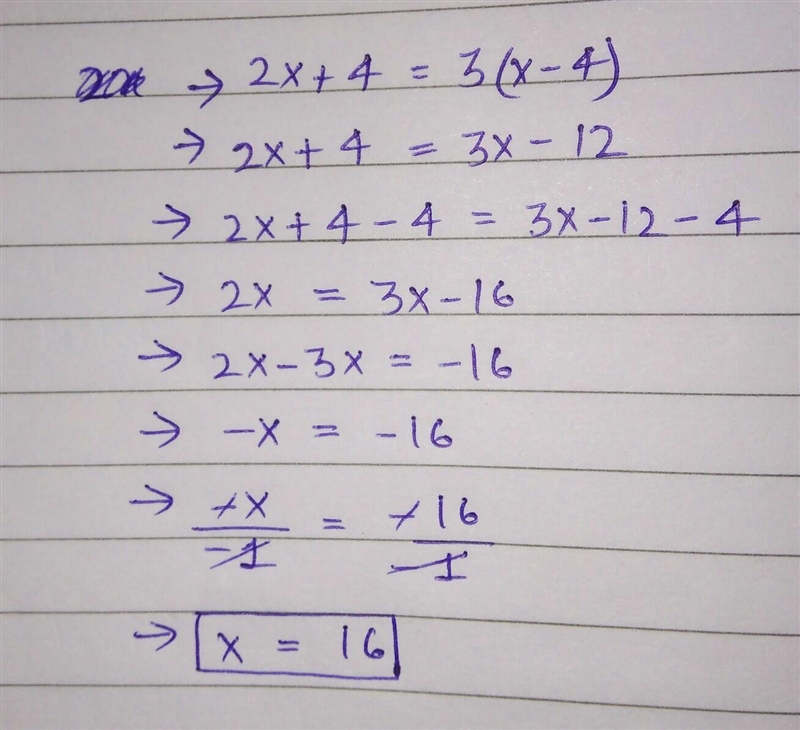 → 2x + 4 = 3(x - 4)
→ 2x + 4 = 3x - 12
→ 2x + 4 - 4 = 3x - 12 - 4
→ 2x = 3x - 16
→ 2x - 3x = -16
→ -x = -16
→ -x/-1 = -16/-1
→ x = 16